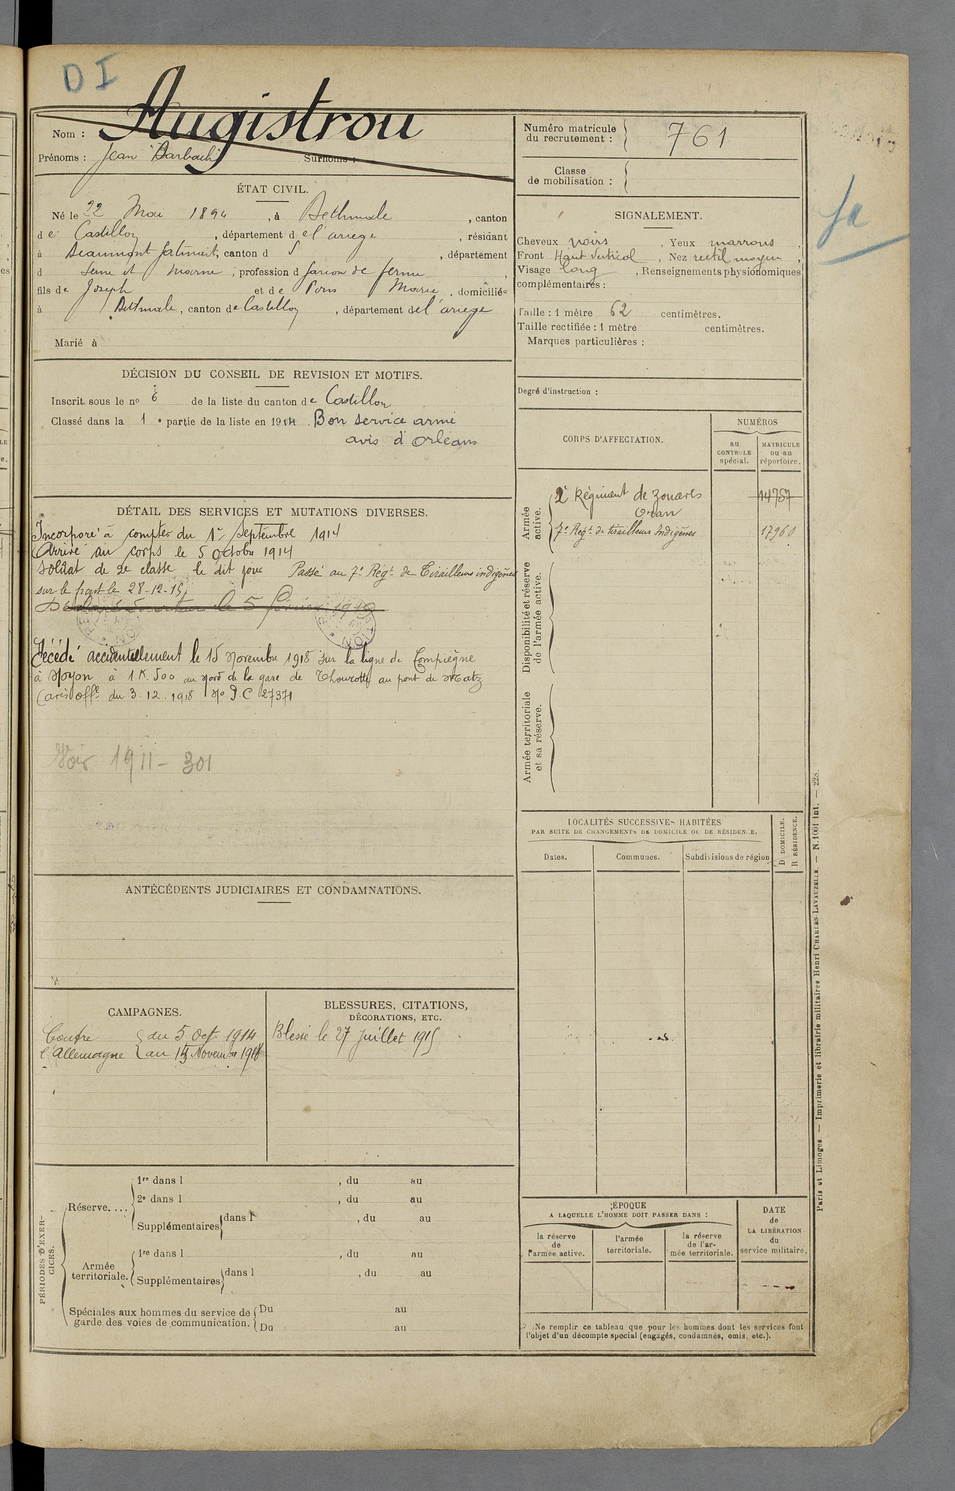 DI
Nom : Augistrou
Prénoms : Jean Surnoms :
ÉTAT CIVIL.
Né le 22 Mai 1894, à Bethmale, canton
de Castillon, département de l'ariege, résidant
à Beaumont gatinait, canton d, département
d Seine et Marne, profession d garcon de ferme,
fils de Joseph et de Pons Marie, domiciliés
à Bethmale, canton de Castillon, département de l'ariege
Marié à
DÉCISION DU CONSEIL DE REVISION ET MOTIFS.
Inscrit sous le no 6 de la liste du canton de Castillon
Classé dans la 1e partie de la liste en 1914 Bon service armé
avis d'Orléans
DÉTAIL DES SERVICES ET MUTATIONS DIVERSES.
Incorporé à compter du 1er Septembre 1914
Arrivé au corps le 5 octobre 1914
Soldat de 2e classe le dit jour Passé au 7e Régt de Tirailleurs indigènes
sur le front le 28-12-15
Décédé accidentellement le 15 Novembre 1918 sur la ligne de Compiègne
à Noyon à 1 K. 500 au Nord de la gare de Thourotte au pont de Matz
(avis offel du 3.12.1918 No DC 27371
Voir 1911-301
ANTÉCÉDENTS JUDICIAIRES ET CONDAMNATIONS.
CAMPAGNES.
Contre l'Allemagne { du 5 Oct 1914
au 15 Novembre 1918
BLESSURES, CITATIONS,
DÉCORATIONS, ETC.
Blessé le 27 Juillet 1915
PÉRIODES D'EXERCICES.
Réserve....
1re dans l , du au
2e dans l , du au
Supplémentaires dans l , du au
Armée territoriale.
1re dans l , du au
Supplémentaires dans l , du au
Spéciales aux hommes du service de garde des voies de communication.
Du au
Du au
Numéro matricule du recrutement : 761
Classe de mobilisation :
SIGNALEMENT.
Cheveux noirs, Yeux marrons,
Front Haut Vertical, Nez rectil moyen,
Visage long, Renseignements physionomiques
complémentaires :
Taille : 1 mètre 62 centimètres.
Taille rectifiée : 1 mètre centimètres.
Marques particulières :
Degré d'instruction :
CORPS D'AFFECTATION.
NUMÉROS
au CONTROLE spécial.
MATRICULE ou au répertoire.
Armée active.
2e Régiment de Zouaves 14757
Oran
7e Régt de tirailleurs Indigènes 17960
Disponibilité et réserve de l'armée active.
Armée territoriale et sa réserve.
LOCALITÉS SUCCESSIVES HABITÉES
PAR SUITE DE CHANGEMENTS DE DOMICILE OU DE RÉSIDENCE.
Dates. Communes. Subdivisions de région
D DOMICILE.
R RÉSIDENCE.
ÉPOQUE
A LAQUELLE L'HOMME DOIT PASSER DANS :
la réserve de l'armée active.
l'armée territoriale.
la réserve de l'armée territoriale.
DATE de LA LIBÉRATION du service militaire.
Ne remplir ce tableau que pour les hommes dont les services font
l'objet d'un décompte spécial (engagés, condamnés, omis, etc.).
Paris et Limoges. — Imprimerie et librairie militaires Henri CHARLES-LAVAUZELLE. — N. 1001 Int. — 228.